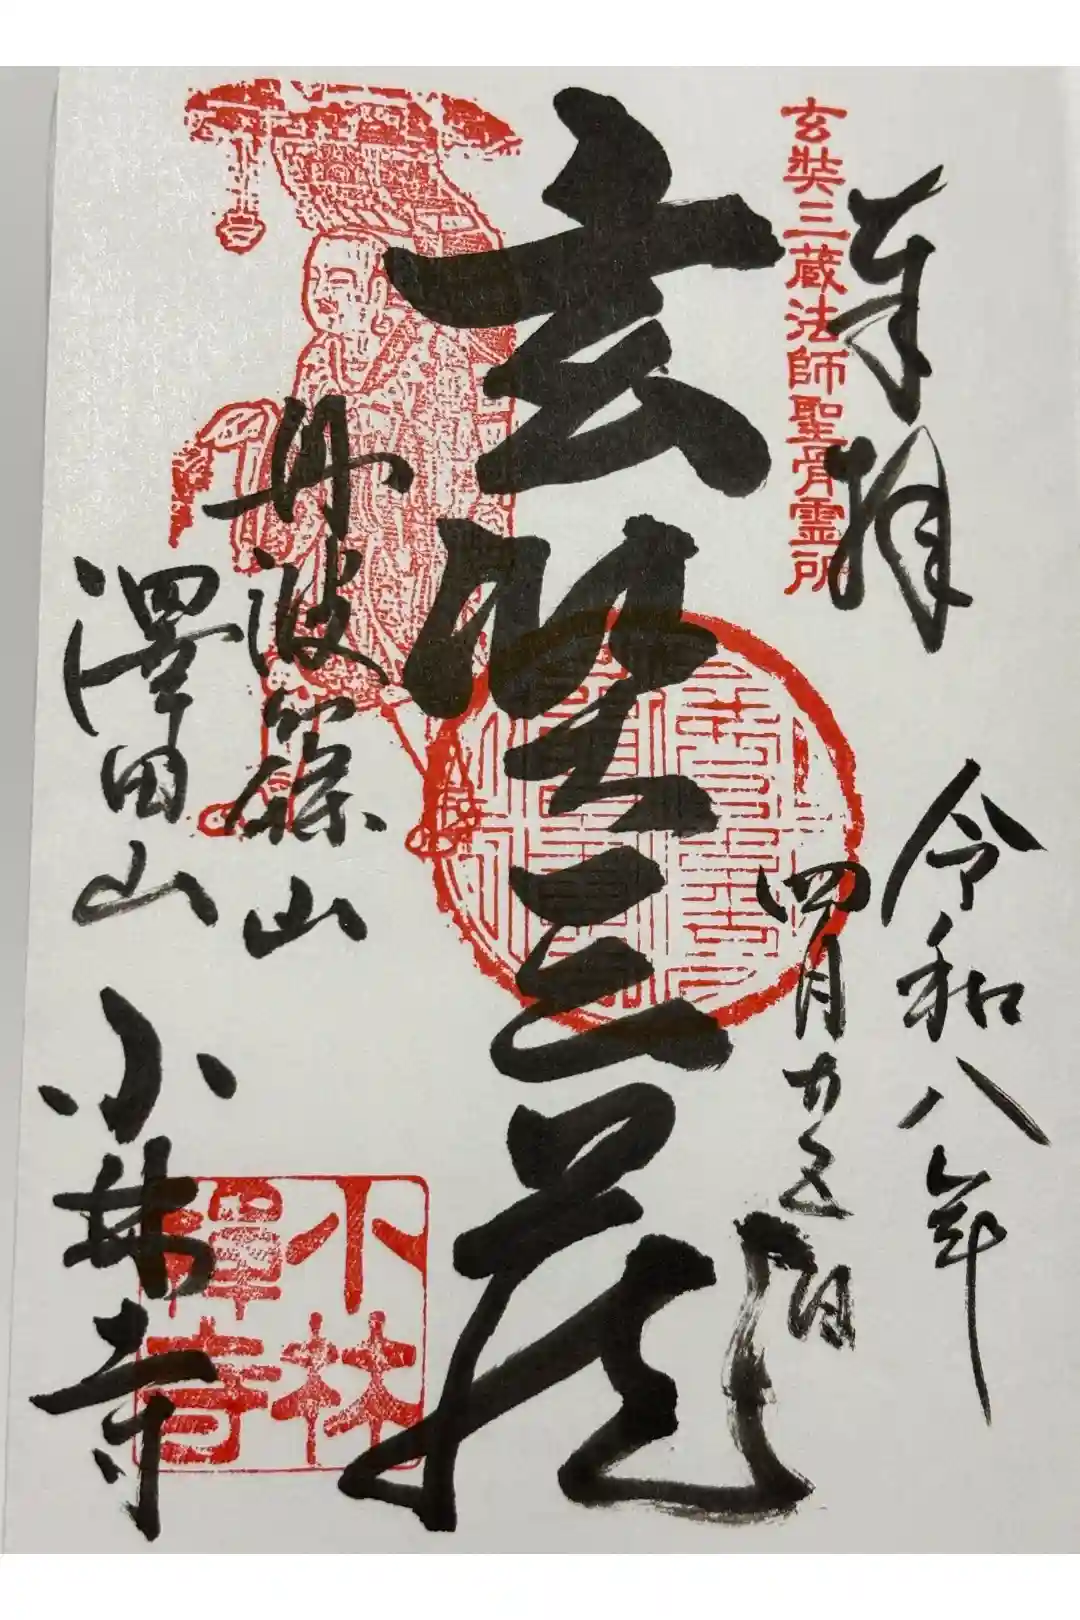 奉拝
令和八年
四月廿五日
玄奘三蔵法師聖骨霊所
玄奘三蔵
丹波篠山
澤田山
小林寺
小林
禅寺